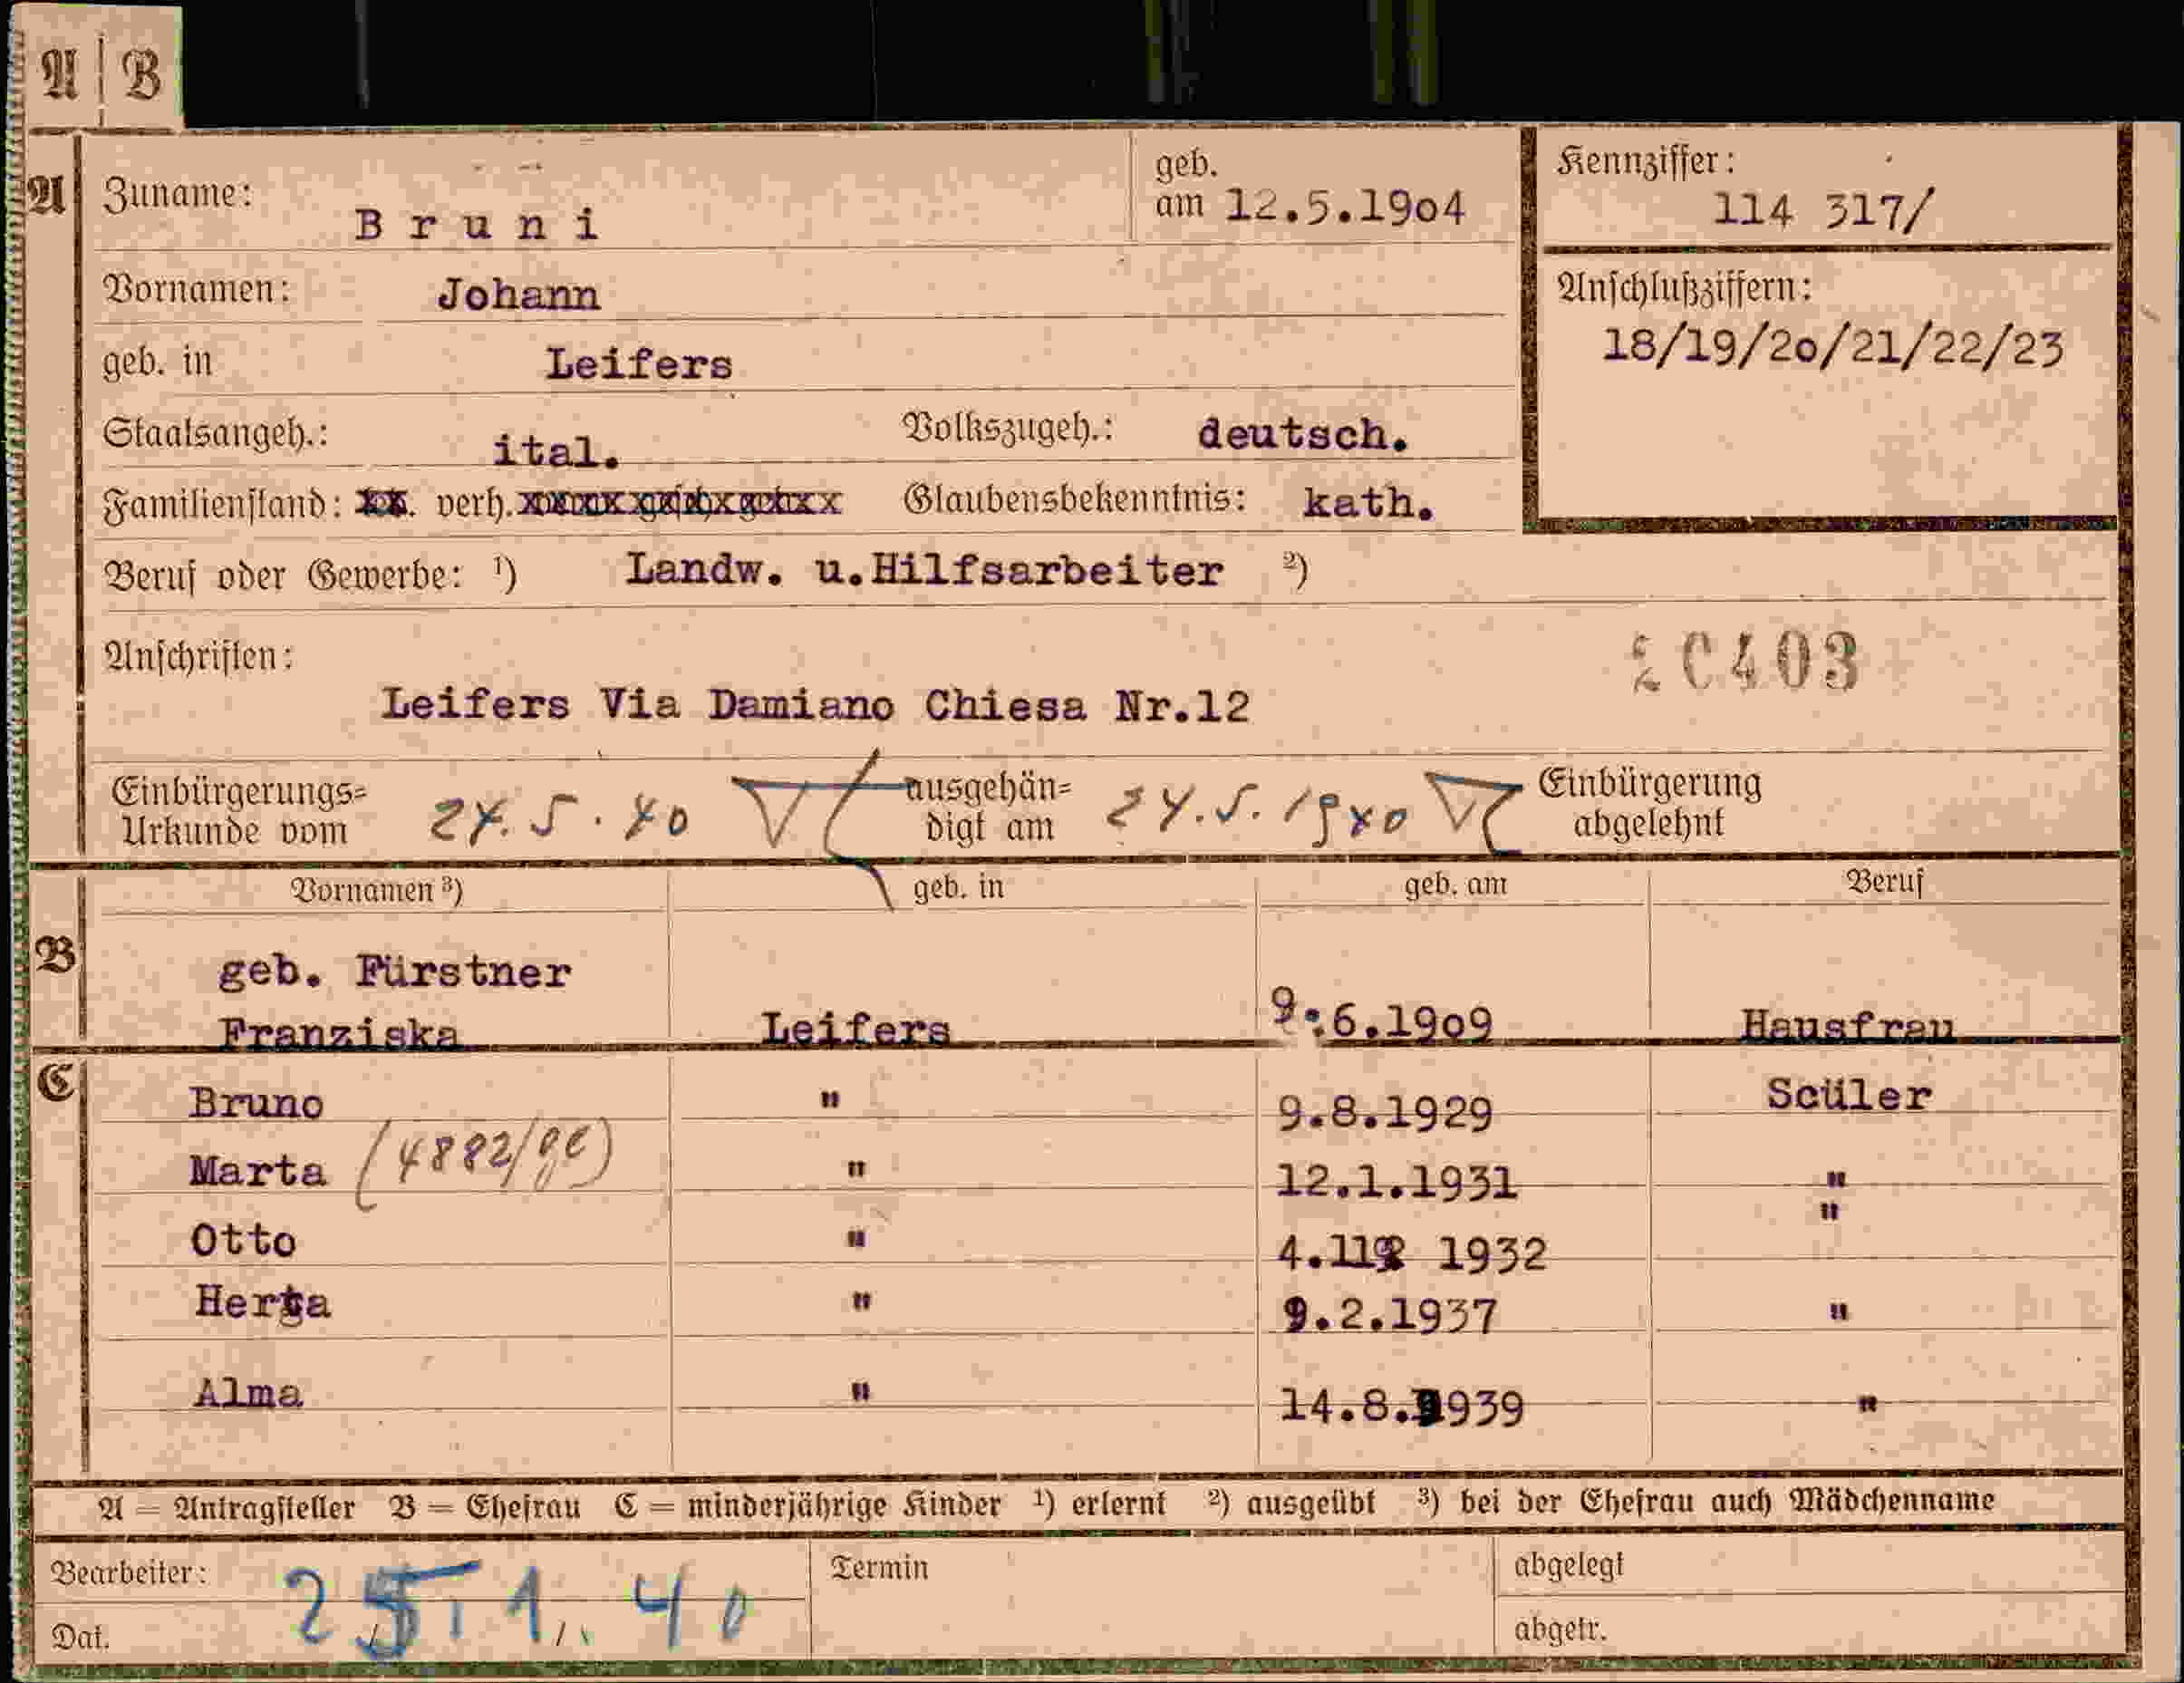 A | B
A Zuname: Bruni geb. am 12.5.1904 Kennziffer: 114 317/
Vornamen: Johann Anschlußziffern:
geb. in Leifers 18/19/20/21/22/23
Staatsangeh.: ital. Volkszugeh.: deutsch.
Familienstand: verh. Glaubensbekenntnis: kath.
Beruf oder Gewerbe: ¹) Landw. u.Hilfsarbeiter ²)
Anschriften: 20403
Leifers Via Damiano Chiesa Nr.12
Einbürgerungs= ausgehän= Einbürgerung
Urkunde vom 24.5.40 digt am 24.5.1940 abgelehnt
Vornamen ³) geb. in geb. am Beruf
B geb. Fürstner
Franziska Leifers 9.6.1909 Hausfrau
C Bruno " 9.8.1929 Scüler
Marta (4882/ge) " 12.1.1931 "
Otto " 4.11 1932 "
Herta " 9.2.1937 "
Alma " 14.8.1939 "
A = Antragsteller B = Ehefrau C = minderjährige Kinder ¹) erlernt ²) ausgeübt ³) bei der Ehefrau auch Mädchenname
Bearbeiter: Termin abgelegt
Dat. 25.1.40 abgetr.